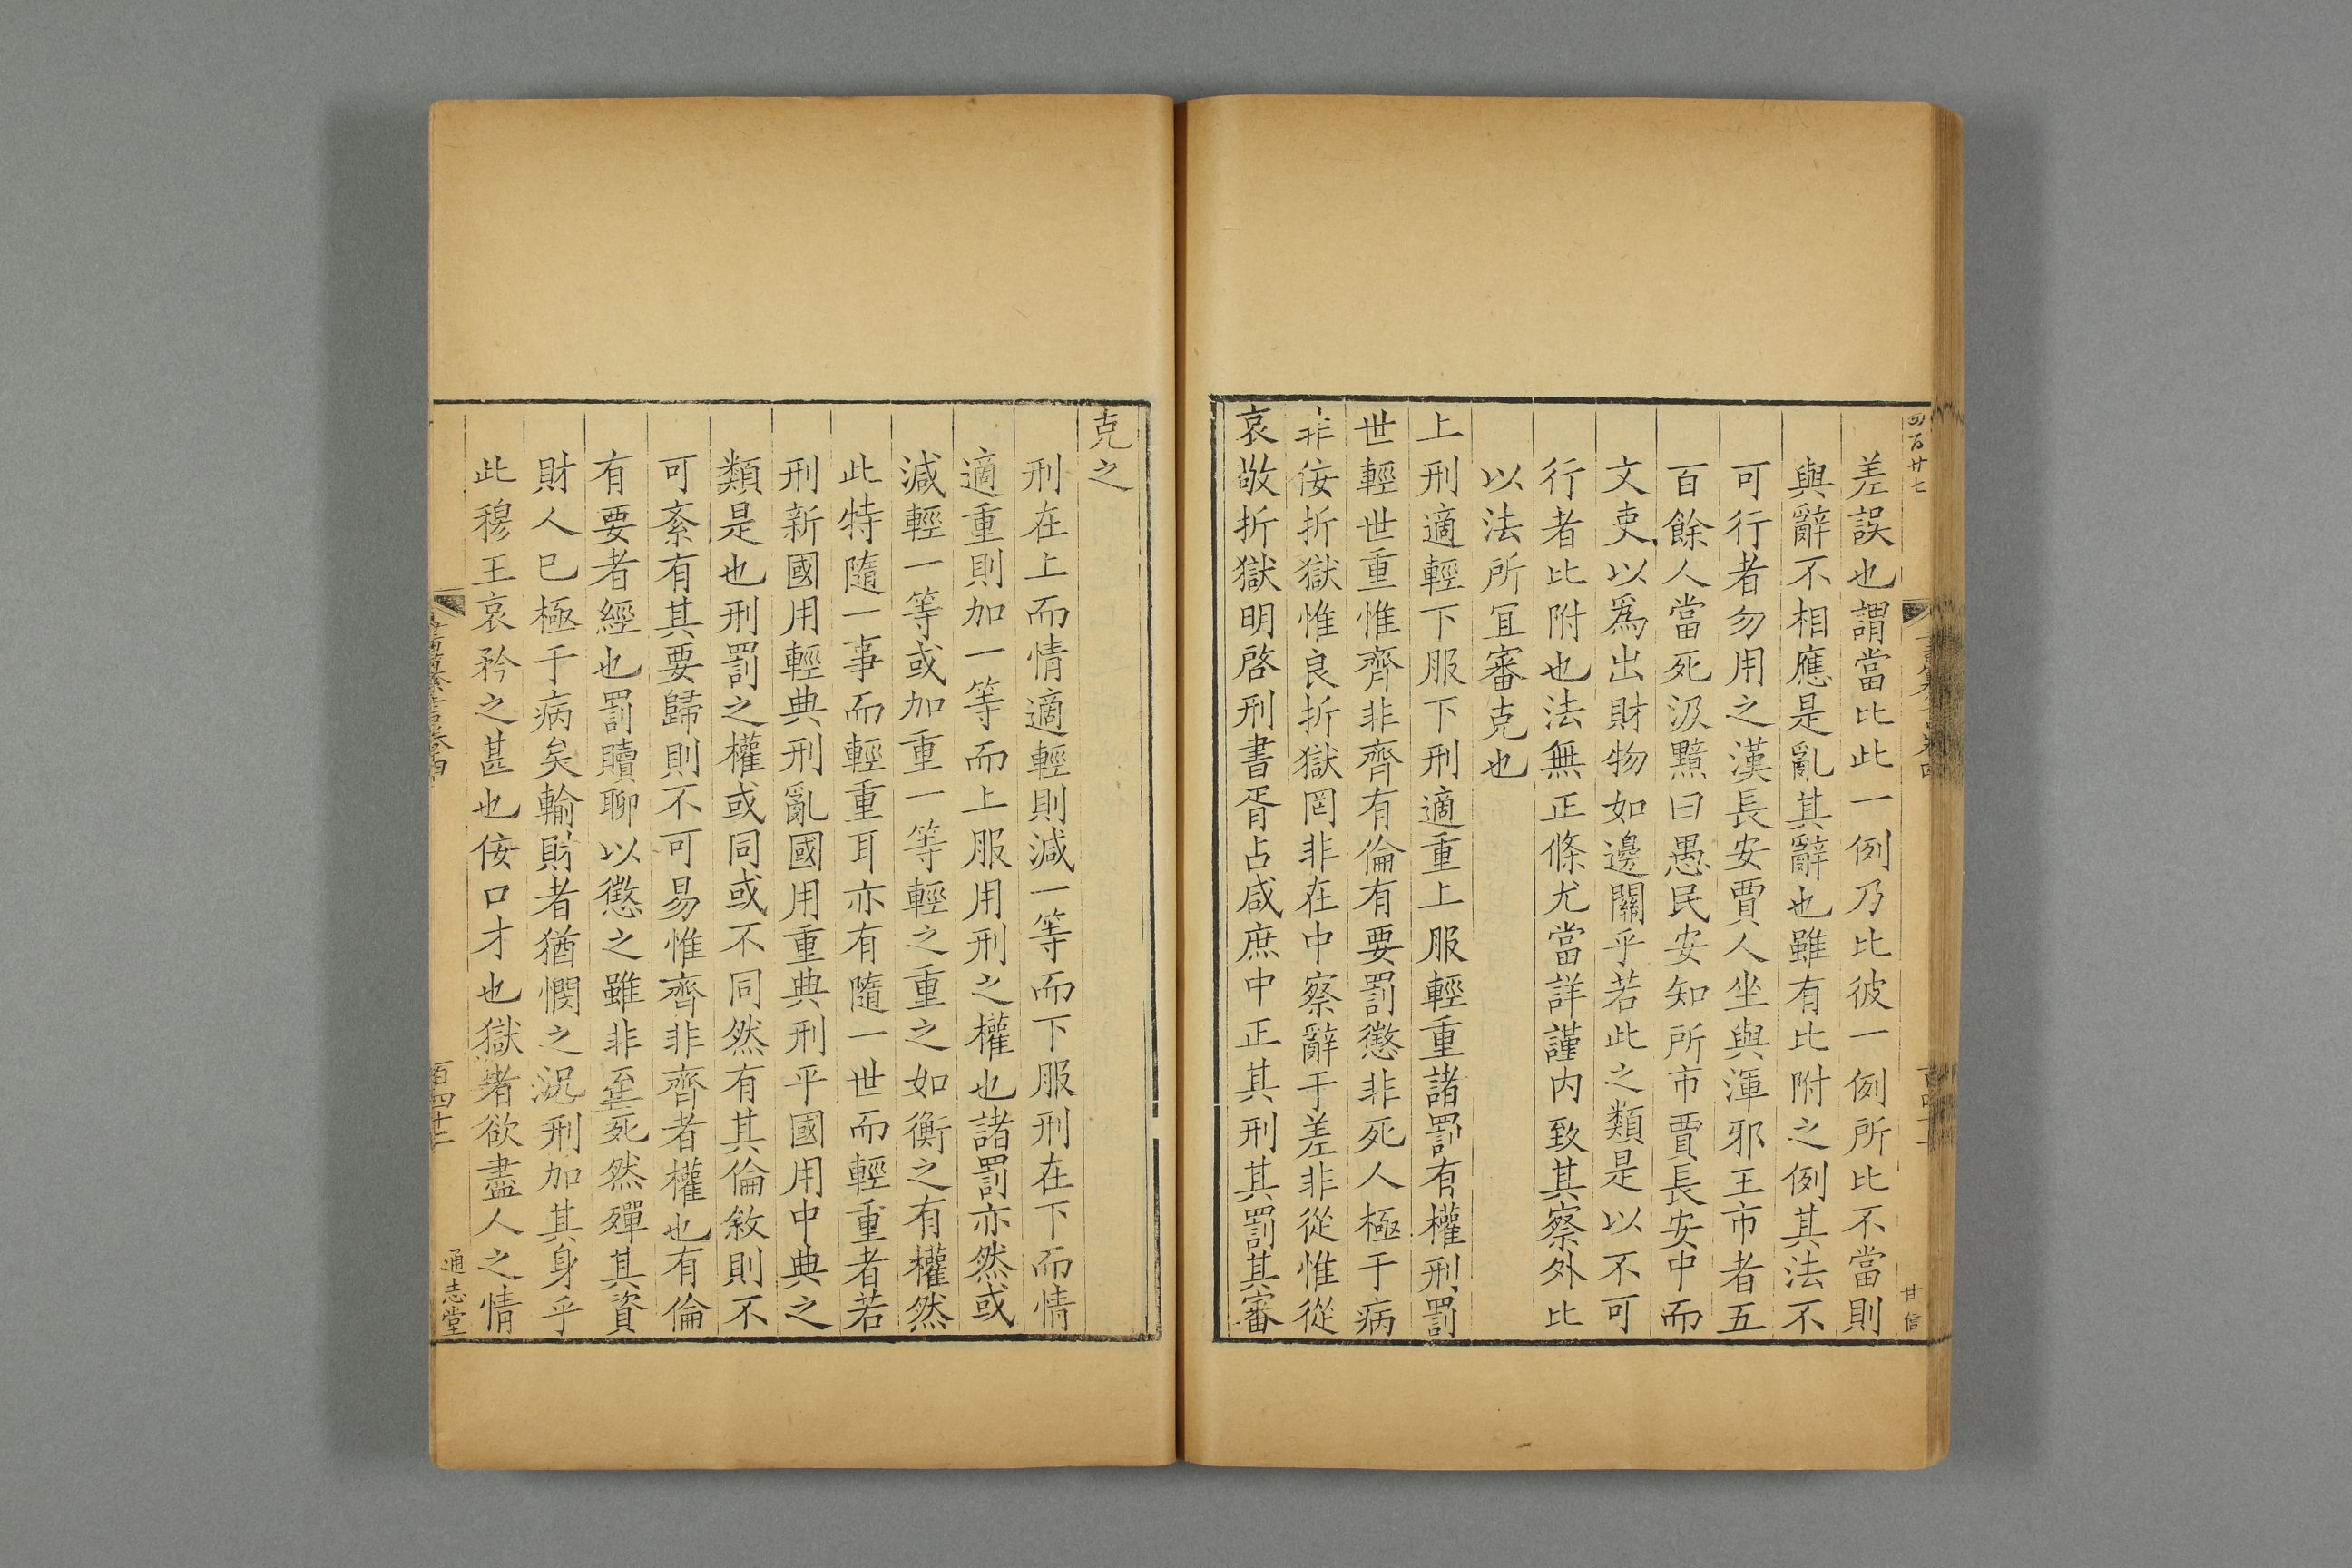 四百廿七
甘信
差誤也謂當比此一例乃比彼一例所比不當則
與辭不相應是亂其辭也雖有比附之例其法不
可行者勿用之漢長安賈人坐與渾邪王市者五
百餘人當死汲黯曰愚民安知所市賈長安中而
文吏以爲出財物如邊關乎若此之類是以不可
行者比附也法無正條尤當詳謹内致其察外比
以法所宜審克也
上刑適輕下服下刑適重上服輕重諸罰有權刑罰
世輕世重惟齊非齊有倫有要罰懲非死人極于病
非佞折獄惟良折獄罔非在中察辭于差非從惟從
哀敬折獄明啓刑書胥占咸庶中正其刑其罰其審
克之
刑在上而情適輕則減一等而下服刑在下而情
適重則加一等而上服用刑之權也諸罰亦然或
減輕一等或加重一等輕之重之如衡之有權然
此特隨一事而輕重耳亦有隨一世而輕重者若
刑新國用輕典刑亂國用重典刑平國用中典之
類是也刑罰之權或同或不同然有其倫敘則不
可紊有其要歸則不可易惟齊非齊者權也有倫
有要者經也罰贖聊以懲之雖非至死然殫其資
財人已極于病矣輸財者猶憫之況刑加其身乎
此穆王哀矜之甚也佞口才也獄者欲盡人之情
百四十二
通志堂